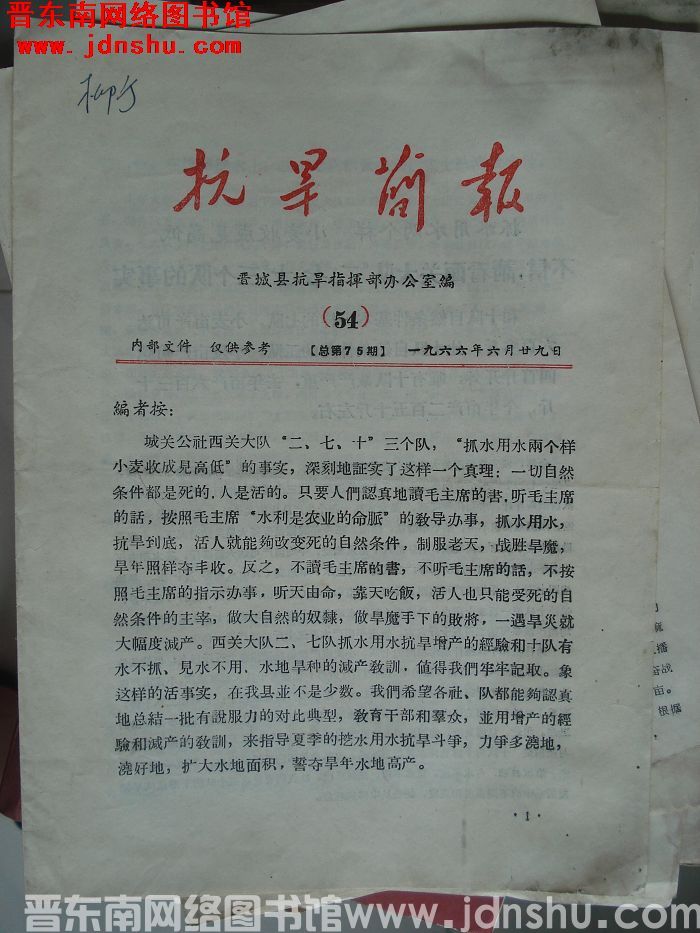 晋东南网络图书馆
www.jdnshu.com
抗旱简报
晋城县抗旱指揮部办公室编
(54)
内部文件 仅供参考 【总第75期】 一九六六年六月廿九日
編者按：
城关公社西关大队“二、七、十”三个队，“抓水用水兩个样
小麦收成見高低”的事实，深刻地証实了这样一个真理：一切自然
条件都是死的，人是活的。只要人們認真地讀毛主席的書，听毛主席
的話，按照毛主席“水利是农业的命脈”的敎导办事，抓水用水，
抗旱到底，活人就能夠改变死的自然条件，制服老天，战胜旱魔，
旱年照样夺丰收。反之，不讀毛主席的書，不听毛主席的話，不按
照毛主席的指示办事，听天由命，靠天吃飯，活人也只能受死的自
然条件的主宰，做大自然的奴隸，做旱魔手下的敗将，一遇旱災就
大幅度減产。西关大队二、七队抓水用水抗旱增产的經驗和十队有
水不抓、見水不用、水地旱种的減产敎訓，値得我們牢牢記取。象
这样的活事实，在我县並不是少数。我們希望各社、队都能夠認真
地总結一批有說服力的对比典型，敎育干部和羣众，並用增产的經
驗和減产的敎訓，来指导夏季的挖水用水抗旱斗爭，力爭多澆地，
澆好地，扩大水地面积，誓夺旱年水地高产。
·1·
播
战
亩。
根据
晋东南网络图书馆www.jdnshu.com